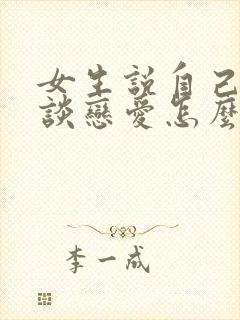 女生说自己
談戀愛怎麼
李一成